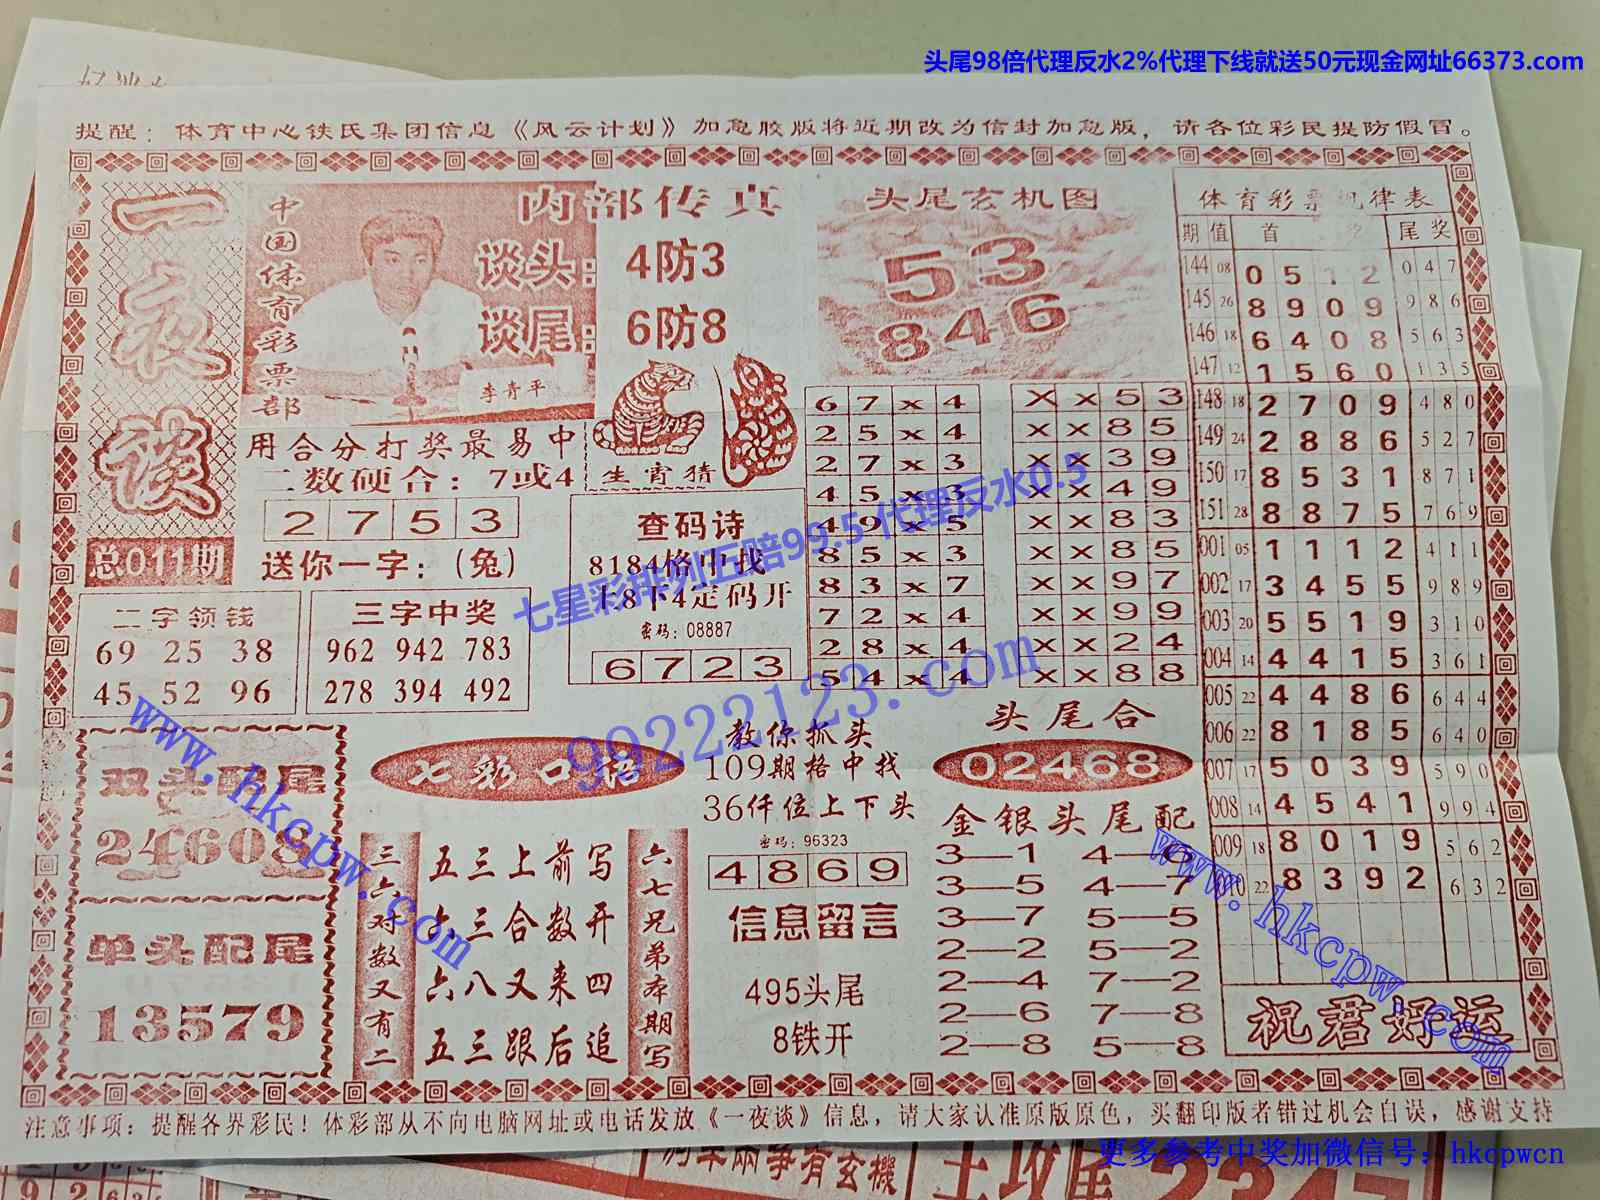 头尾98倍代理反水2%代理下线就送50元现金网址66373.com
提醒：体育中心铁氏集团信息《风云计划》加急胶版将近期改为信封加急版，请各位彩民提防假冒。
一夜谈
总011期
中国体育彩票部
内部传真
谈头：4防3
谈尾：6防8
李青平
用合分打奖最易中
二数硬合：7或4
2 7 5 3
送你一字：(兔)
生宵猜
头尾玄机图
53
846
二字领钱
69 25 38
45 52 96
三字中奖
962 942 783
278 394 492
查码诗
8184格中找
上8下4定码开
密码：08887
6 7 2 3
6 7 x 4
2 5 x 4
2 7 x 3
4 5 x 3
4 9 x 5
8 5 x 3
8 3 x 7
7 2 x 4
2 8 x 4
5 4 x 4
X x 5 3
x x 8 5
x x 3 9
x x 4 9
x x 8 3
x x 8 5
x x 9 7
x x 9 9
x x 2 4
x x 8 8
体育彩票规律表
期 值 首 奖 尾 奖
144 08 0 5 1 2 0 4 7
145 26 8 9 0 9 9 8 6
146 18 6 4 0 8 5 6 3
147 12 1 5 6 0 1 3 5
148 18 2 7 0 9 4 8 0
149 24 2 8 8 6 5 2 7
150 17 8 5 3 1 8 7 1
151 28 8 8 7 5 7 6 9
001 05 1 1 1 2 4 1 1
002 17 3 4 5 5 9 8 9
003 20 5 5 1 9 3 1 0
004 14 4 4 1 5 3 6 1
005 22 4 4 8 6 6 4 4
006 22 8 1 8 5 6 4 0
007 17 5 0 3 9 5 9 0
008 14 4 5 4 1 9 9 4
009 18 8 0 1 9 5 6 2
010 22 8 3 9 2 6 3 2
祝君好运
双头配尾
24608
单头配尾
13579
七彩口语
三六对数又有二
五三上前写
六三合数开
六八又来四
五三跟后追
六七兄弟本期写
教你抓头
109期格中找
36仟位上下头
密码：96323
4 8 6 9
信息留言
495头尾
8铁开
头尾合
02468
金银头尾配
3—1 4—6
3—5 4—7
3—7 5—5
2—2 5—2
2—4 7—2
2—6 7—8
2—8 5—8
注意事项：提醒各界彩民！体彩部从不向电脑网址或电话发放《一夜谈》信息，请大家认准原版原色，买翻印版者错过机会自误，感谢支持
七星彩排列五赔99.5 代理反水0.5
99222123.com
www.hkcpw.com
www.hkcpw.com
更多参考中奖加微信号：hkcpwcn